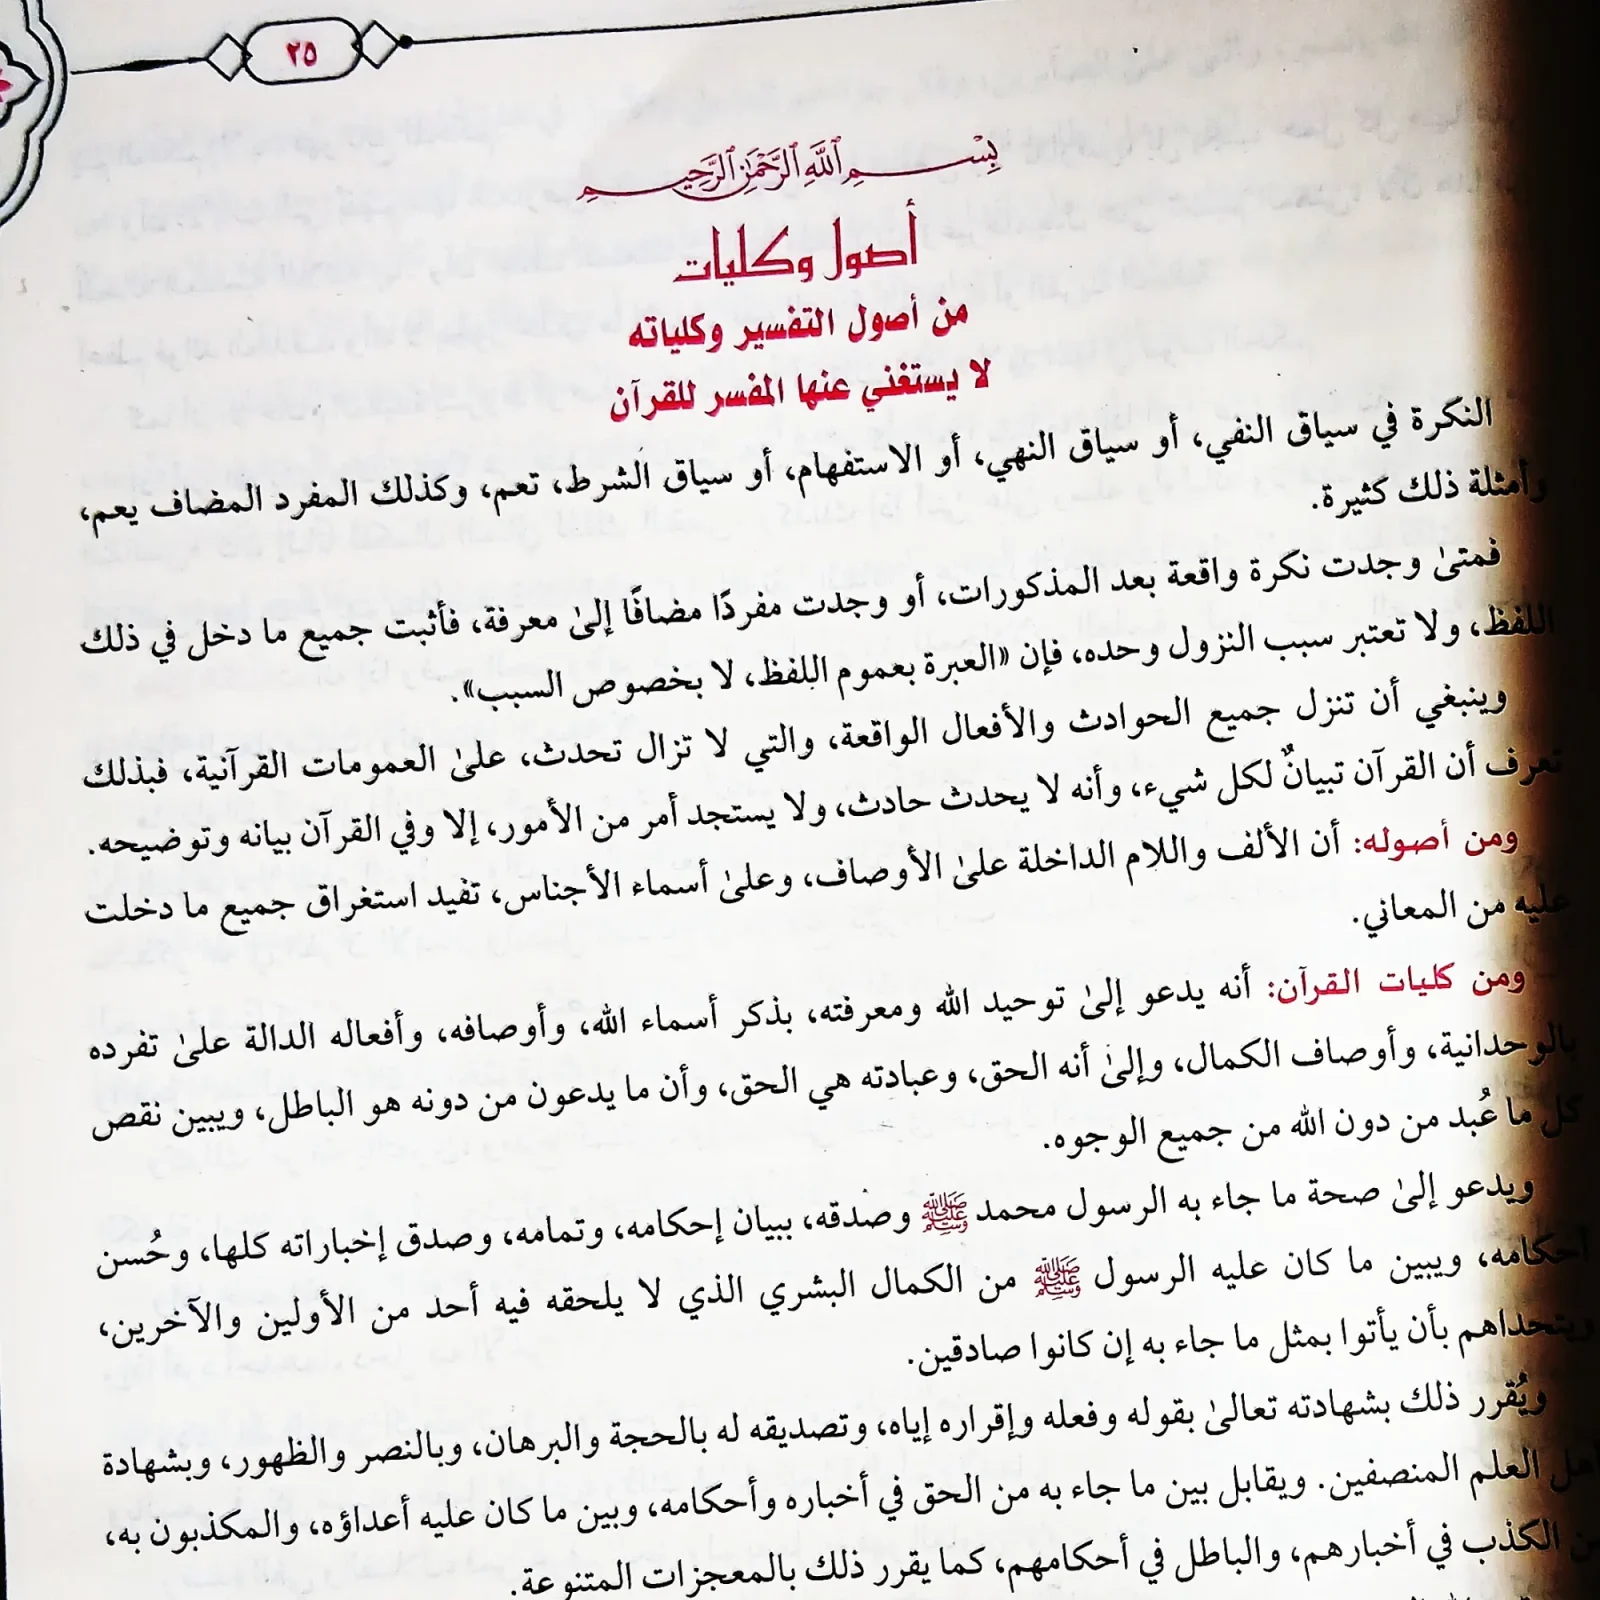 ٢٥
بِسْمِ اللَّهِ الرَّحْمَٰنِ الرَّحِيمِ
أصول وكليات
من أصول التفسير وكلياته
لا يستغني عنها المفسر للقرآن
النكرة في سياق النفي، أو سياق النهي، أو الاستفهام، أو سياق الشرط، تعم، وكذلك المفرد المضاف يعم،
وأمثلة ذلك كثيرة.
فمتىٰ وجدت نكرة واقعة بعد المذكورات، أو وجدت مفردًا مضافًا إلىٰ معرفة، فأثبت جميع ما دخل في ذلك
اللفظ، ولا تعتبر سبب النزول وحده، فإن «العبرة بعموم اللفظ، لا بخصوص السبب».
وينبغي أن تنزل جميع الحوادث والأفعال الواقعة، والتي لا تزال تحدث، علىٰ العمومات القرآنية، فبذلك
تعرف أن القرآن تبيانٌ لكل شيء، وأنه لا يحدث حادث، ولا يستجد أمر من الأمور، إلا وفي القرآن بيانه وتوضيحه.
ومن أصوله: أن الألف واللام الداخلة علىٰ الأوصاف، وعلىٰ أسماء الأجناس، تفيد استغراق جميع ما دخلت
عليه من المعاني.
ومن كليات القرآن: أنه يدعو إلىٰ توحيد الله ومعرفته، بذكر أسماء الله، وأوصافه، وأفعاله الدالة علىٰ تفرده
بالوحدانية، وأوصاف الكمال، وإلىٰ أنه الحق، وعبادته هي الحق، وأن ما يدعون من دونه هو الباطل، ويبين نقص
كل ما عُبد من دون الله من جميع الوجوه.
ويدعو إلىٰ صحة ما جاء به الرسول محمد ﷺ وصدقه، ببيان إحكامه، وتمامه، وصدق إخباراته كلها، وحُسن
أحكامه، ويبين ما كان عليه الرسول ﷺ من الكمال البشري الذي لا يلحقه فيه أحد من الأولين والآخرين،
ويتحداهم بأن يأتوا بمثل ما جاء به إن كانوا صادقين.
ويُقرر ذلك بشهادته تعالىٰ بقوله وفعله وإقراره إياه، وتصديقه له بالحجة والبرهان، وبالنصر والظهور، وبشهادة
أهل العلم المنصفين. ويقابل بين ما جاء به من الحق في أخباره وأحكامه، وبين ما كان عليه أعداؤه، والمكذبون به،
من الكذب في أخبارهم، والباطل في أحكامهم، كما يقرر ذلك بالمعجزات المتنوعة.